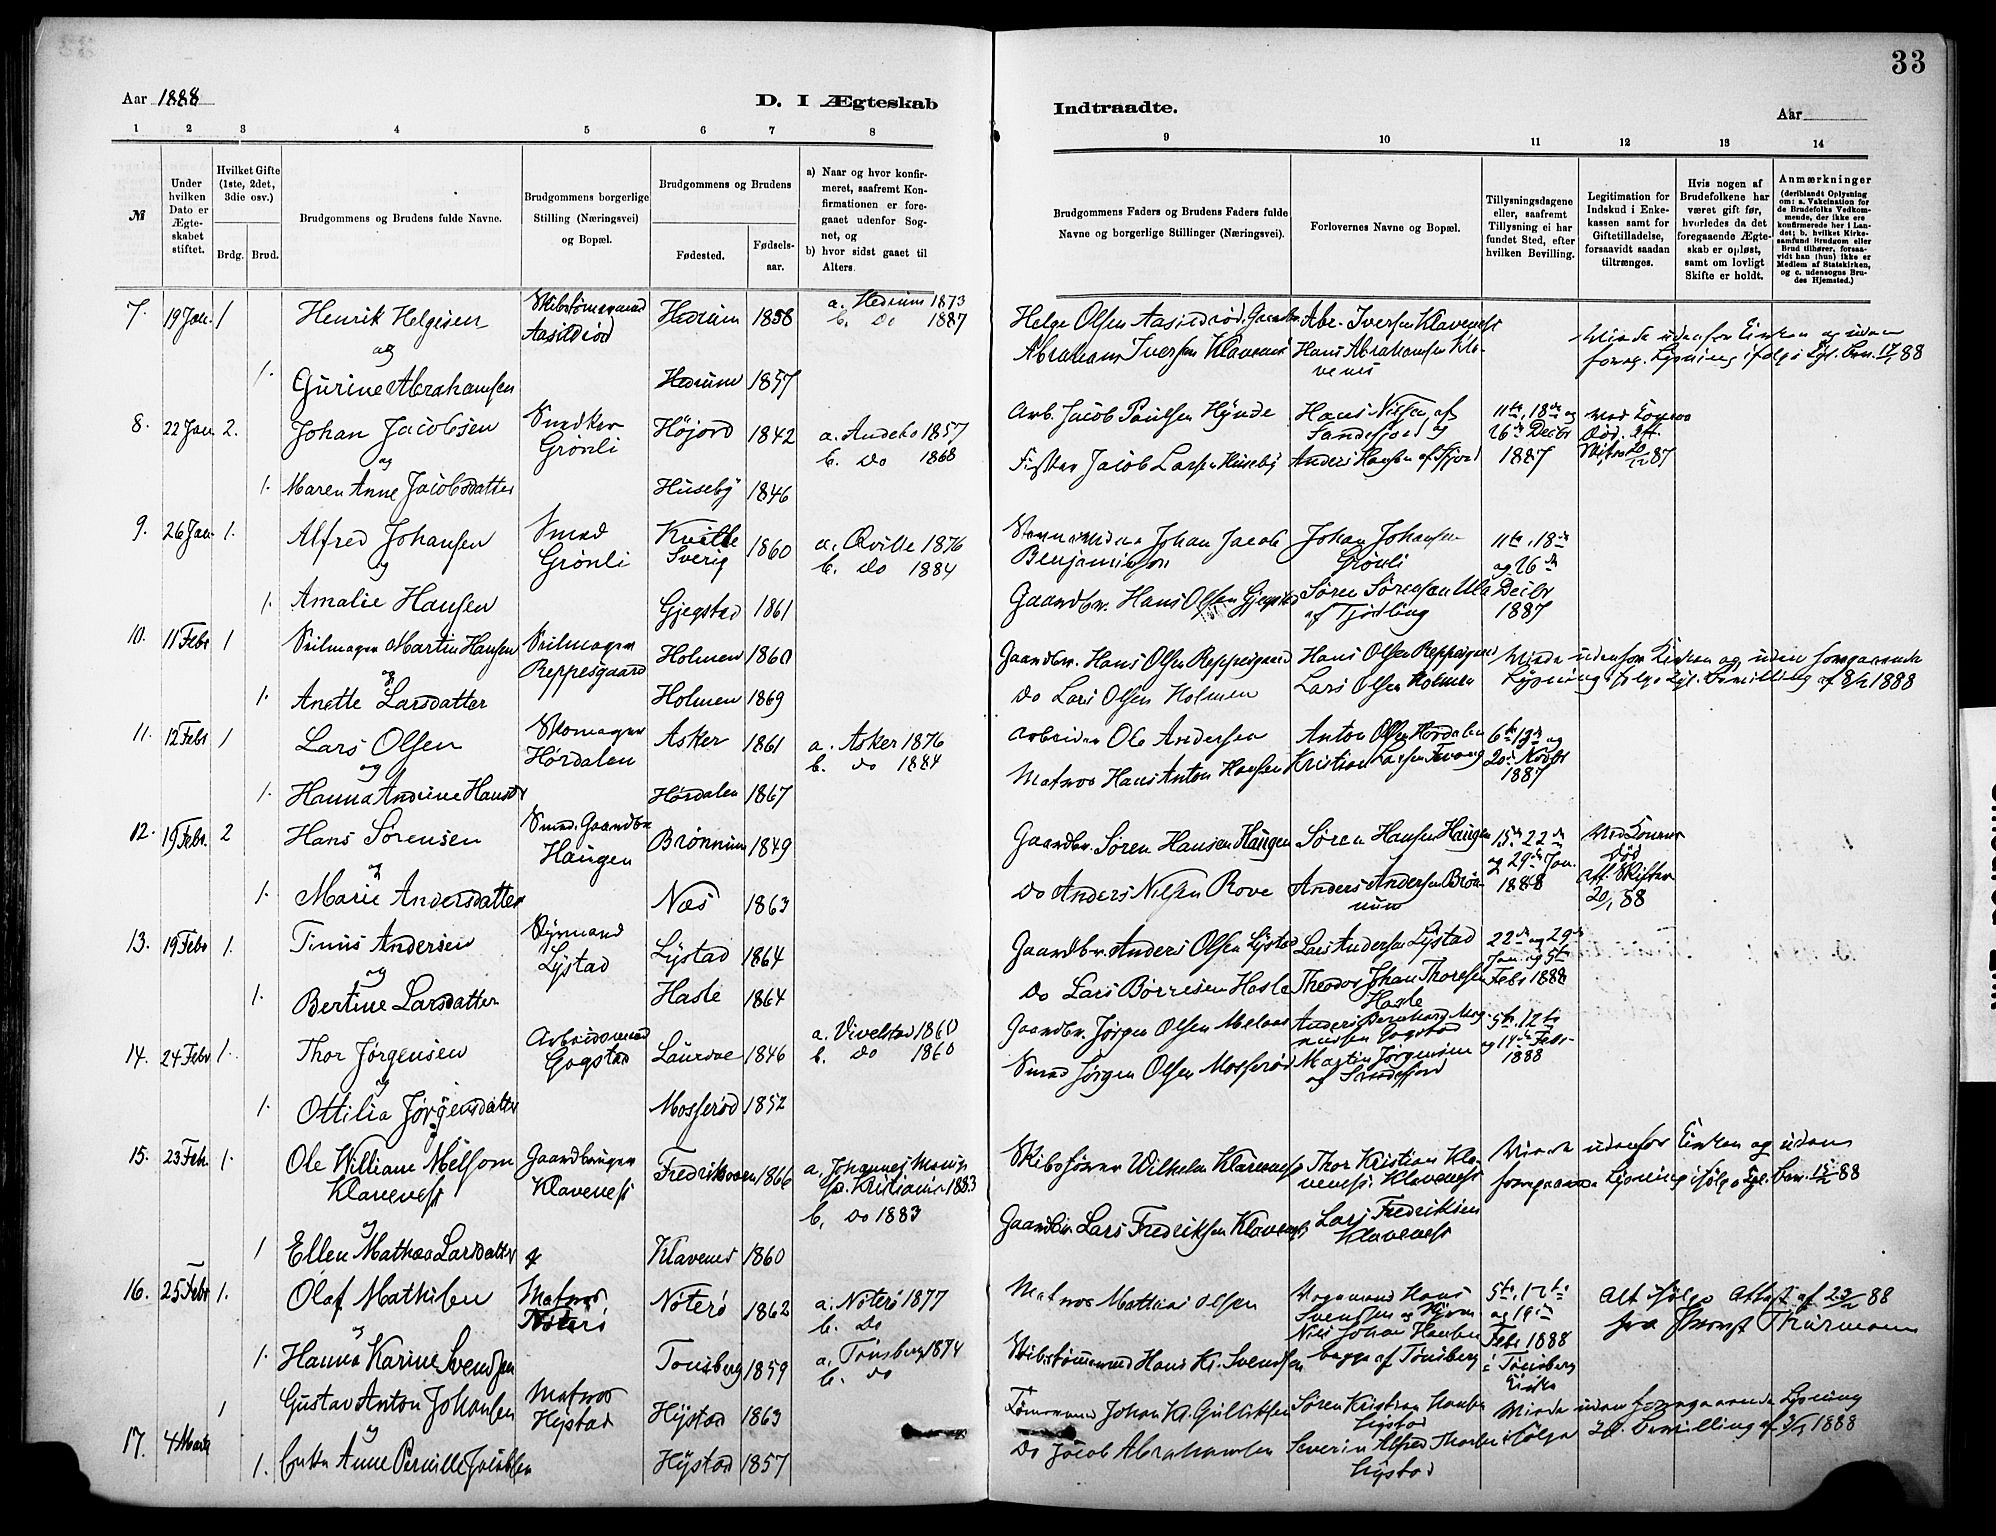 33
Aar 1888
D. I Ægteskab
Indtraadte.
Aar
1 2 3 4 5 6 7 8
9 10 11 12 13 14
№
Under hvilken Dato er Ægteskabet stiftet.
Hvilket Gifte (1ste, 2det, 3die osv.)
Brdg. Brud.
Brudgommens og Brudens fulde Navne.
Brudgommens borgerlige Stilling (Næringsvei) og Bopæl.
Brudgommens og Brudens
Fødested.
Fødselsaar.
a) Naar og hvor konfirmeret, saafremt Konfirmationen er foregaaet udenfor Sognet, og
b) hvor sidst gaaet til Alters.
Brudgommens Faders og Brudens Faders fulde Navne og borgerlige Stillinger (Næringsvei).
Forlovernes Navne og Bopæl.
Tillysningsdagene eller, saafremt Tillysning ei har fundet Sted, efter hvilken Bevilling.
Legitimation for Indskud i Enkekassen samt for Giftetilladelse, forsaavidt saadan tiltrænges.
Hvis nogen af Brudefolkene har været gift før, hvorledes da det foregaaende Ægteskab er opløst, samt om lovligt Skifte er holdt.
Anmærkninger
(deriblandt Oplysning om: a. Vakcination for de Brudefolks Vedkommende, der ikke ere konfirmerede her i Landet; b. hvilket Kirkesamfund Brudgom eller Brud tilhører, forsaavidt han (hun) ikke er Medlem af Statskirken, og c. udensogns Brudes Hjemsted.)
7. 19 Jan. 1 Henrik Helgesen Aasildrød Hedrum 1858 a. Hedrum 1873
b. Do 1887
Helge Olsen Abr. Iversen Klavenæs
og
1. Gurine Abrahamsen Hedrum 1857
Abraham Iversen Klavenæs Hans Abrahamsen Klavenes
8. 22 Jan 2. Johan Jacobsen Smed Grønli Højord 1842 a. Andebo 1857
b. Do 1868
Arb. Jacob Paulsen Hans Nilsen af Sandefjord og 11te, 18de og 26de Decbr 1887
og
1. Maren Anne Jacobsdatter Huseby 1846
Jacob Larsen Huseby Anders Hansen
9. 26 Jan 1. Alfred Johansen Smed Grønli Kville Sverig 1860 a. Qville 1876
b. Do 1884
Johan Jacob Benjaminsen Johan Johansen Grønli 11te, 18de og 26de Decbr 1887
og
1. Amalie Hansen Gjegstad 1861
Gaardbr. Hans Olsen Søren Sørensen af Tjølling
10. 11 Febr 1 Seilmager Martin Hansen Seilmager Reppesgaard Holmen 1860
Gaardbr. Hans Olsen Reppesgaard Hans Olsen Reppesgaard Viede udenfor Kirken og uden foregaaende Lysning ifølge Kgl. Bevilling af 8/2 1888
og
1. Anette Larsdatter Holmen 1869
Do Lars Olsen Holmen Lars Olsen Holmen
11. 12 Febr 1 Lars Olsen Skomager Hørdalen Asker 1861 a. Asker 1876
b. Do 1884
Arbeider Ole Andersen Anton Olsen Hørdalen 6te, 13de og 20de Novbr 1887
og
1. Hanna Andrine Hansdtr Hørdalen 1867
Matros Hans Anton Hansen Kristian Larsen
12. 19 Febr. 2 Hans Sørensen Smed, Gaardbr. Haugen Brønnum 1849
Gaardbr. Søren Hansen Haugen Søren Hansen Haugen 15de 22de og 29de Jan. 1888
og
1. Marie Andersdatter Næs 1863
Do Anders Nilsen Rove Anders Andersen Brønnum Att. Skifter 20/1 88
13. 19 Febr 1. Tinius Andersen Styrmand Lystad Lystad 1864
Gaardbr. Anders Olsen Lystad Lars Andersen Lystad 22de og 29de Jan. og 5te Febr 1888
og
1. Bertine Larsdatter Hasle 1864
Do Lars Børresen Hasle Theodor Johan Thoresen Hasle
14. 24 Febr 1. Thor Jørgensen Arbeidsmand Gogstad Laurdæ 1846 a. Vivelstad 1860
b. Do 1860
Gaardbr. Jørgen Olsen Anders Bernhard Magnussen Gogstad 5te, 12te og Febr. 1888
og
1. Ottilia Jørgensdatter Mosserød 1852
Smed Jørgen Olsen Mosserød Martin Jørgensen af Sandefjord
15. 23 Feb. 1. Ole William Melsom Klavenæss Gaardbruger Klavenæs Fredriksværn 1866 a. Johannes Menigh. Kristiania 1883
b. Do 1883
Skibsfører Wilhelm Klavenæs Thor Kristian Klavenæss, Klavenæs Viede udenfor Kirken og uden foregaaende Lysning ifølge Kgl. Bev. 15/2 88
og
1 Ellen Mathea Larsdatter Klavenes 1860
Gaardbr. Lars Fredriksen Klavenæs Lars Fredriksen Klavenæs
16. 25 Febr 1. Olaf Mathisen Matros Nøterø Nøterø 1862 a. Nøterø 1877
b. Do
Matros Mathias Olsen Hans Svendsen og Nils Johan Hansen begge af Tønsberg 5te, 12te og 19de Febr 1888 i Tønsberg Kirke Alt ifølge Attest af 23/2 88 fra Thurmann
og
1. Hanna Karine Svendsen Tønsberg 1859 a. Tønsberg 1874
b. Do
Skibstømmermand Hans Kr. Svendsen
17. 4 Marts 1 Gustav Anton Johansen Matros Hystad Hystad 1863
Tømmermand Johan Kr. Gulliksen Søren Kristian Hansen Hystad Viede uden foregaaende Lysning ifølge Bevilling af 3/3 1888
og
1. Anne Pernille Jacobsen Hystad 1857
Do Jacob Abrahamsen Severin Alfred Hystad